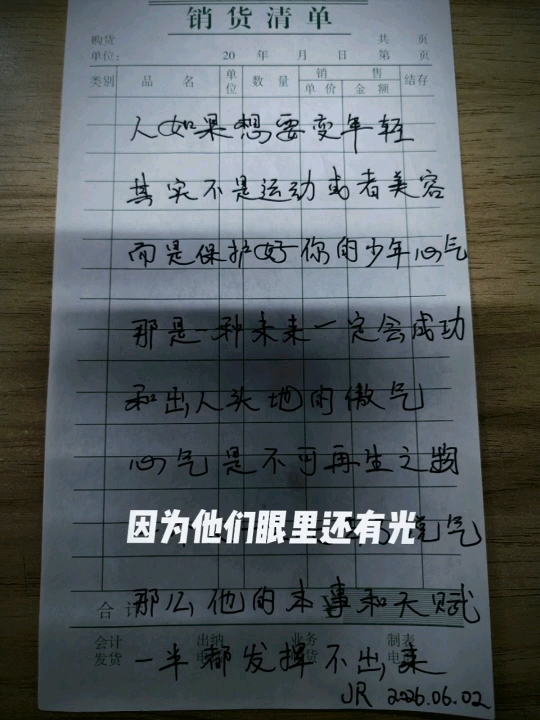 销货清单
购货
单位:
20 年 月 日
共 页
第 页
类别 品名 单位 数量 销售 单价 金额 结存
人如果想要变年轻
其实不是运动或者美容
而是保护好你的少年心气
那是一种未来一定会成功
和出人头地的傲气
心气是不可再生之物
因为他们眼里还有光
气
那么他的本事和天赋
合计
一半都发挥不出来
会计 出纳 业务 制表
发货
JR 2026.06.02